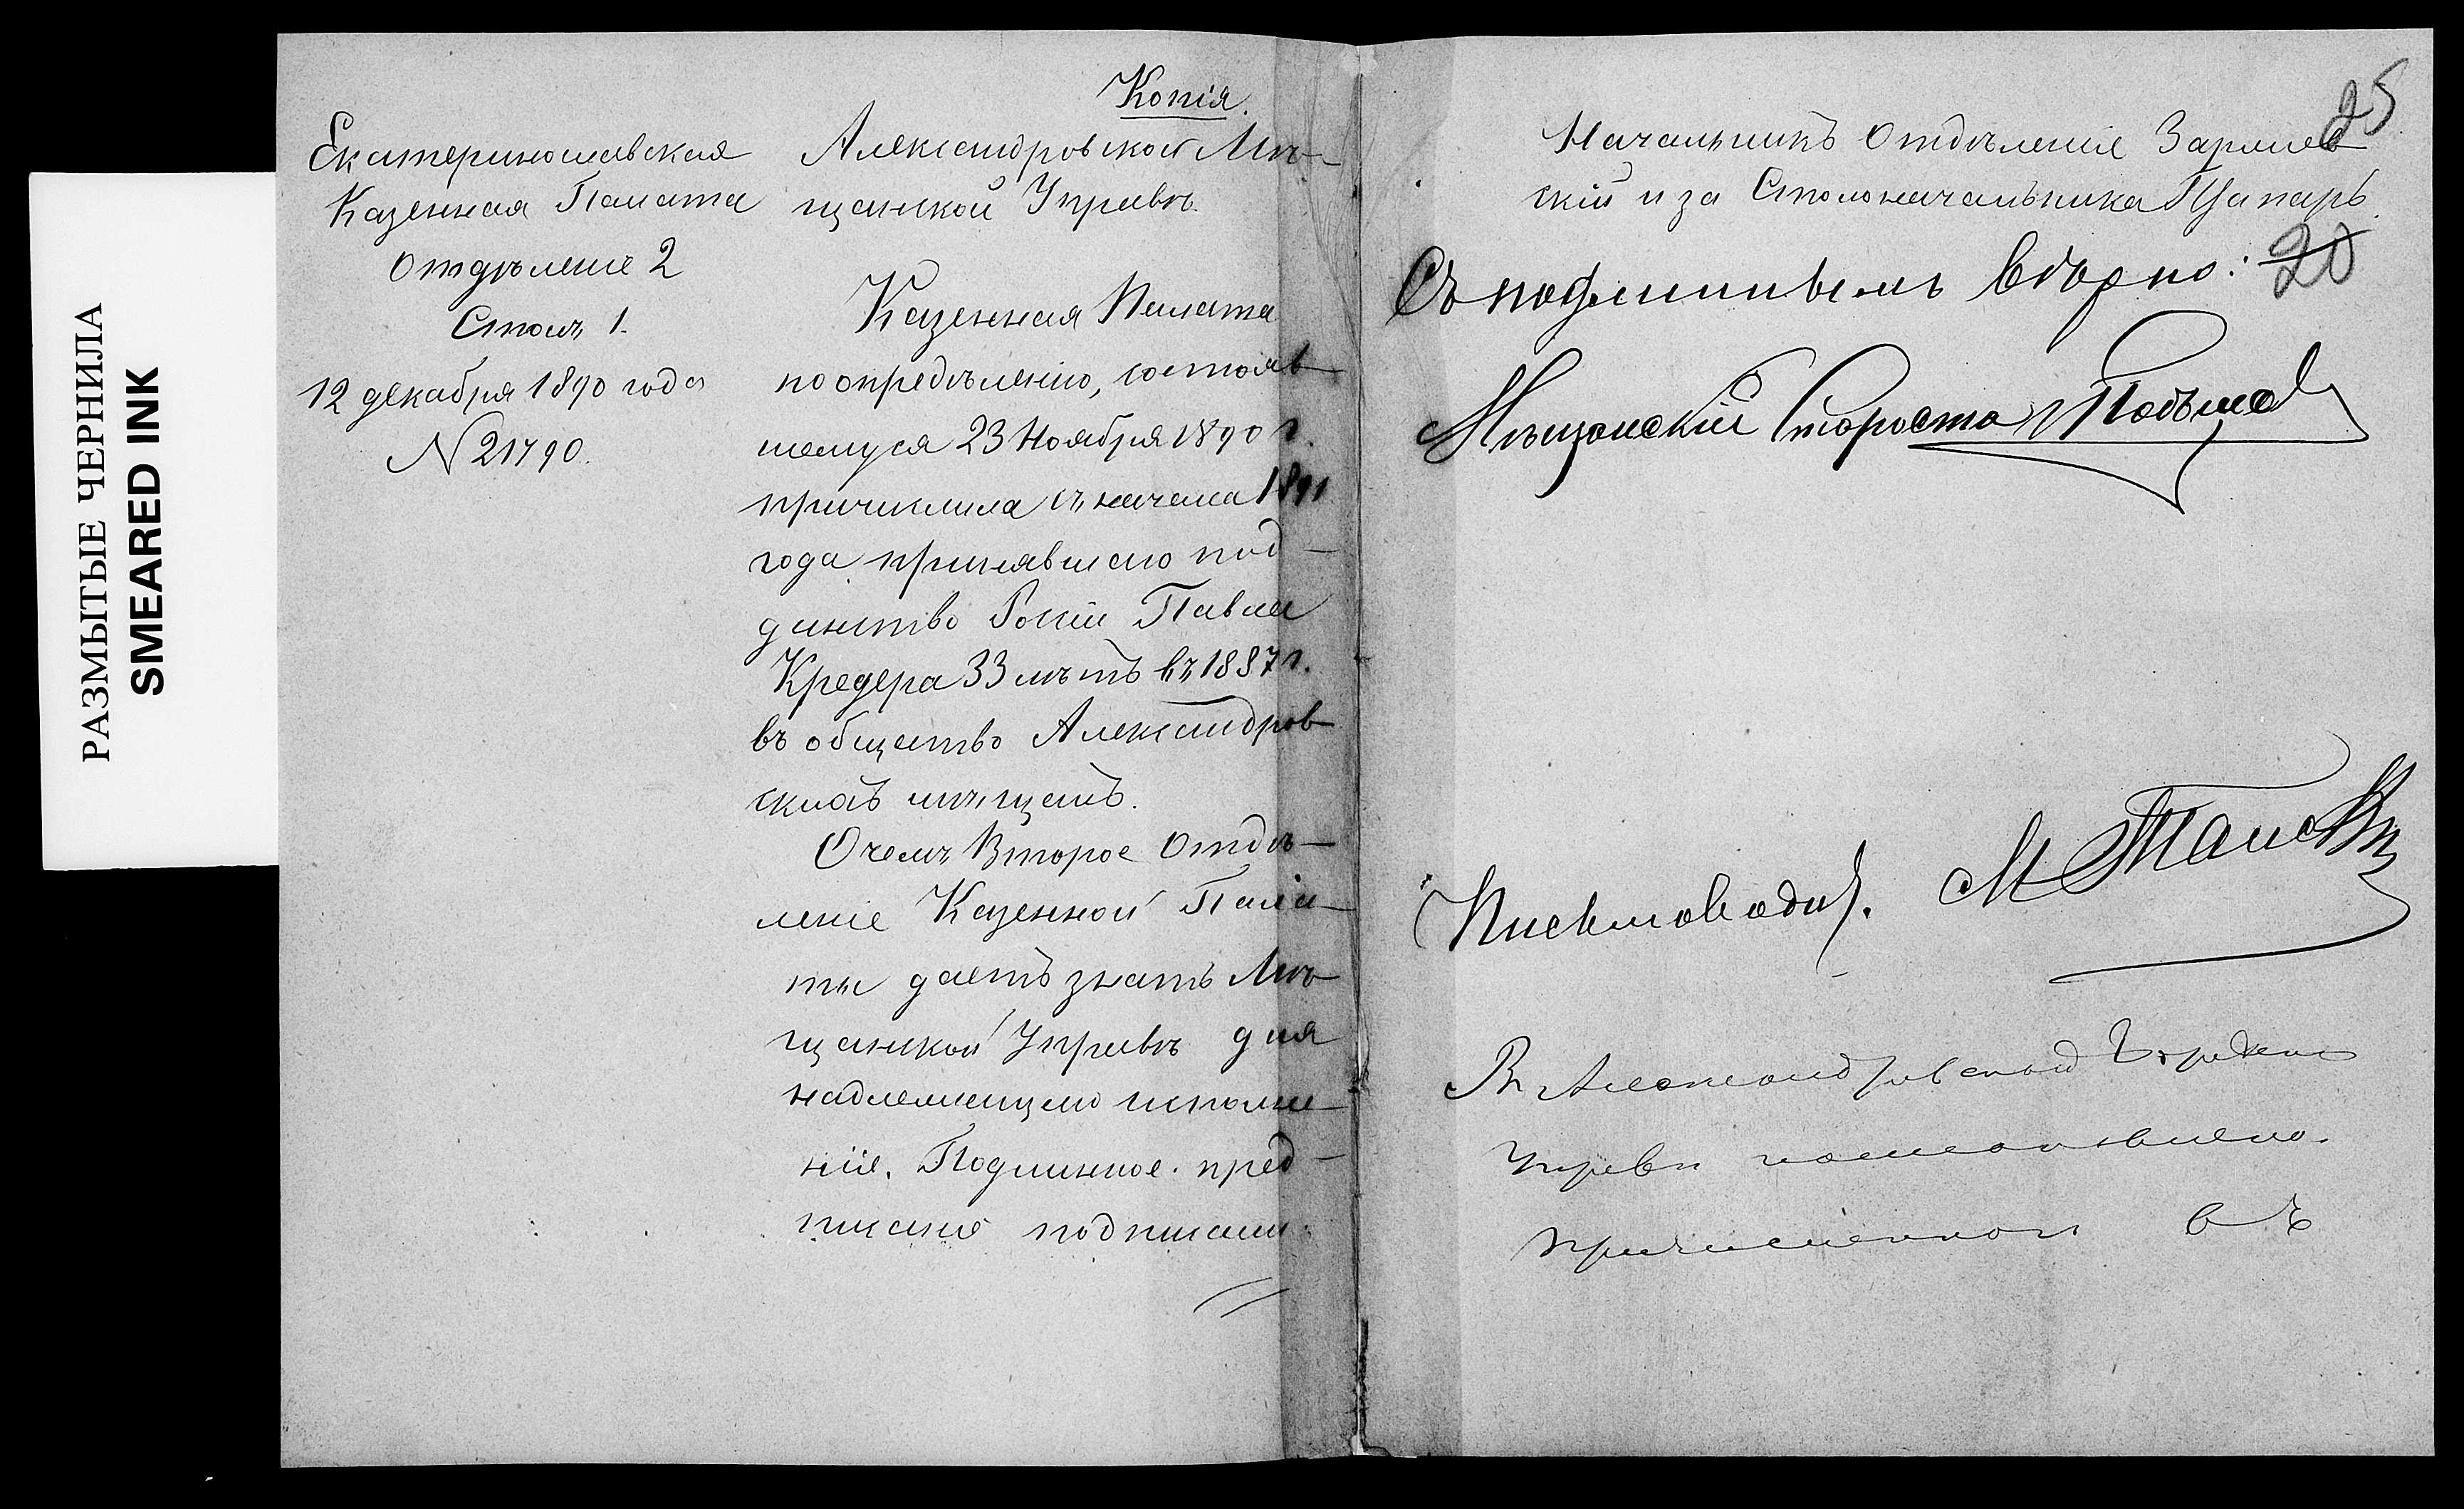 РАЗМЫТЫЕ ЧЕРНИЛА
SMEARED INK
Копія.
Екатеринославская
Казенная Палата
Отдѣленіе 2
Столъ 1.
12 декабря 1890 года
N 21790.
Александровской Мѣ-
щанской Управѣ.
Казенная Палата
по опредѣленію, состояв-
шемуся 23 Ноября 1890 г.
причислила съ начала 1891
года принявшаго под-
данство Россіи Павла
Кредера 33 лѣтъ въ 1887 г.
въ общество Александров-
скихъ мѣщанъ.
О чемъ Второе Отдѣ-
леніе Казенной Пала-
ты даетъ знать Мѣ-
щанской Управѣ для
надлежащаго исполне-
нія. Подлинное пред-
писаніе подписали:
25
Начальникъ Отдѣленія
скій и за Столоначальника Цапарь.
Съ подлиннымъ вѣрно:
20
Мѣщанскій Староста
Письмоводит. М
Въ Александровской Городской
Управѣ
въ